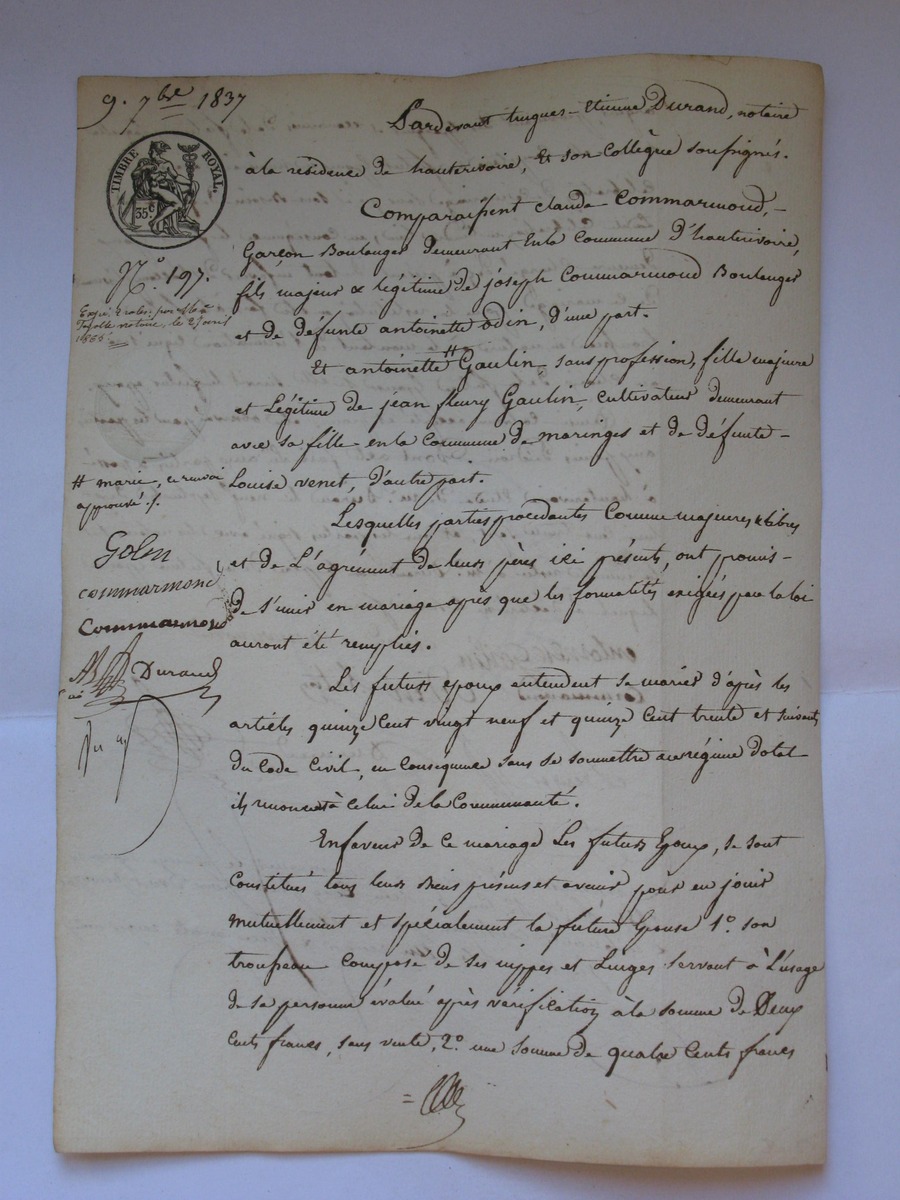 9. 7bre 1837
TIMBRE ROYAL.
35c
No. 197.
notaire, le 2 avril
# marie, ce renvoi
approuvé ./.
Golin
commarmond
Commarmond
Durand
Pardevant hugues-Etienne Durand, notaire
à la résidence de hauterivoire, Et son Collègue soussignés.
Comparaissent claude Commarmond,-
Garçon Boulanger demeurant En la Commune D'hauterivoire,
fils majeur & légitime de joseph Commarmond Boulanger
et de défunte antoinette odin, d'une part.
Et antoinette # Gaulin, sans profession, fille majeure
et Légitime de jean fleury Gaulin, cultivateur demeurant
avec sa fille en la Commune de maringes et de défunte-
Louise venet, d'autre part.
Lesquelles parties procédantes Comme majeures & libres
et de L'agrément de leurs pères ici présents, ont promis-
de s'unir en mariage après que les formalités exigées par la loi
auront été remplies.
Les futurs epoux entendent se marier d'après les
articles quinze Cent vingt neuf et quinze Cent trente et suivants
du Code Civil, en Consequence sans se soumettre au régime dotal
ils renoncent à Celui de la Communauté.
En faveur de ce mariage Les futurs Epoux, se sont
Constitués tous leurs Biens présens et avenir pour en jouir
mutuellement et spécialement la future Epouse 1o. son
trousseau Composé de ses nippes et Linges servant à L'usage
de sa personne évalué après vérification à la somme de Deux
Cents francs, sans vente, 2o. une somme de quatre Cents francs